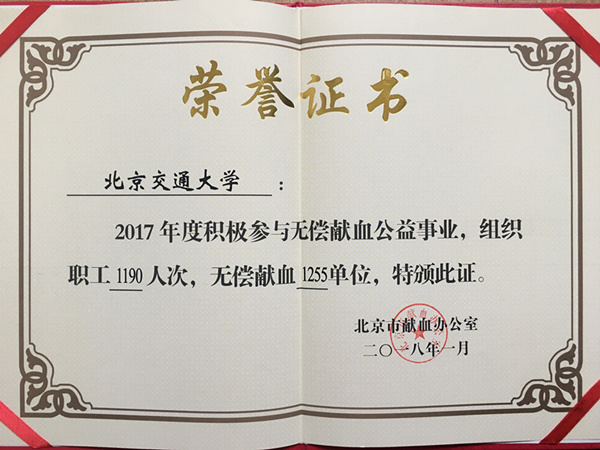 荣誉证书
北京交通大学：
2017年度积极参与无偿献血公益事业，组织
职工1190人次，无偿献血1255单位，特颁此证。
北京市献血办公室
二〇一八年一月